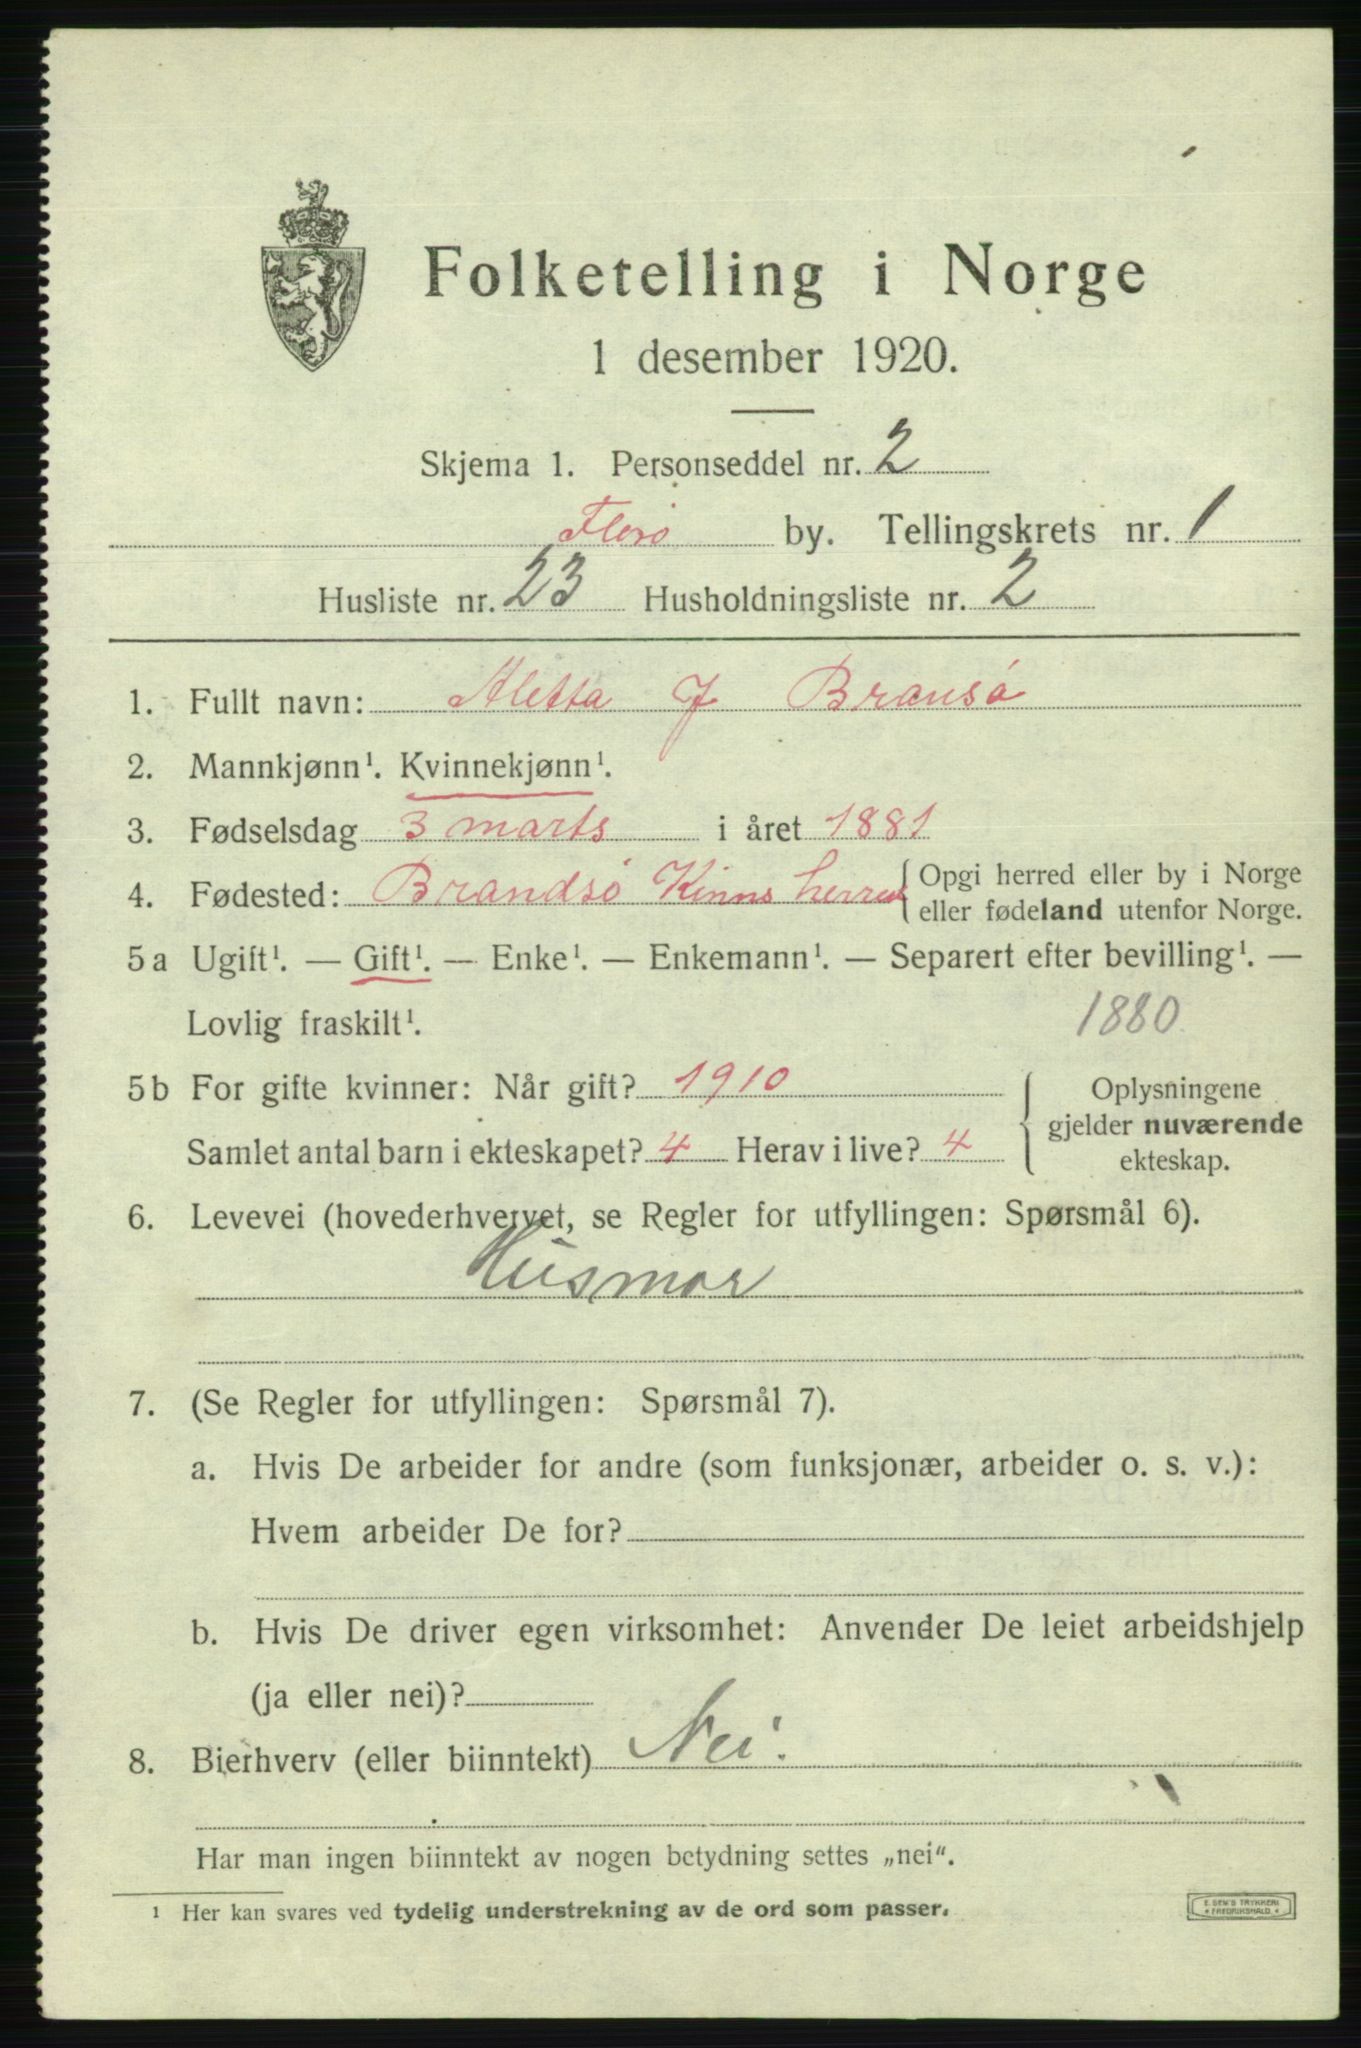 Folketelling i Norge
1 desember 1920.
Skjema 1. Personseddel nr. 2
Florø by. Tellingskrets nr. 1
Husliste nr. 23 Husholdningsliste nr. 2
1. Fullt navn: Aletta J Bransø
2. Mannkjønn¹. Kvinnekjønn¹.
3. Fødselsdag 3 marts i året 1881
4. Fødested: Brandsø Kinns herred { Opgi herred eller by i Norge
eller fødeland utenfor Norge.
5a Ugift¹. — Gift¹. — Enke¹. — Enkemann¹. — Separert efter bevilling¹. —
Lovlig fraskilt¹. 1880
5b For gifte kvinner: Når gift? 1910 { Oplysningene
gjelder nuværende
Samlet antal barn i ekteskapet? 4 Herav i live? 4 ekteskap.
6. Levevei (hovederhvervet, se Regler for utfyllingen: Spørsmål 6).
Husmor
7. (Se Regler for utfyllingen: Spørsmål 7).
a. Hvis De arbeider for andre (som funksjonær, arbeider o. s. v.):
Hvem arbeider De for?
b. Hvis De driver egen virksomhet: Anvender De leiet arbeidshjelp
(ja eller nei)?
8. Bierhverv (eller biinntekt) Nei.
Har man ingen biinntekt av nogen betydning settes „nei“.
¹ Her kan svares ved tydelig understrekning av de ord som passer.
E. SEM'S TRYKKERI
FREDRIKSHALD.